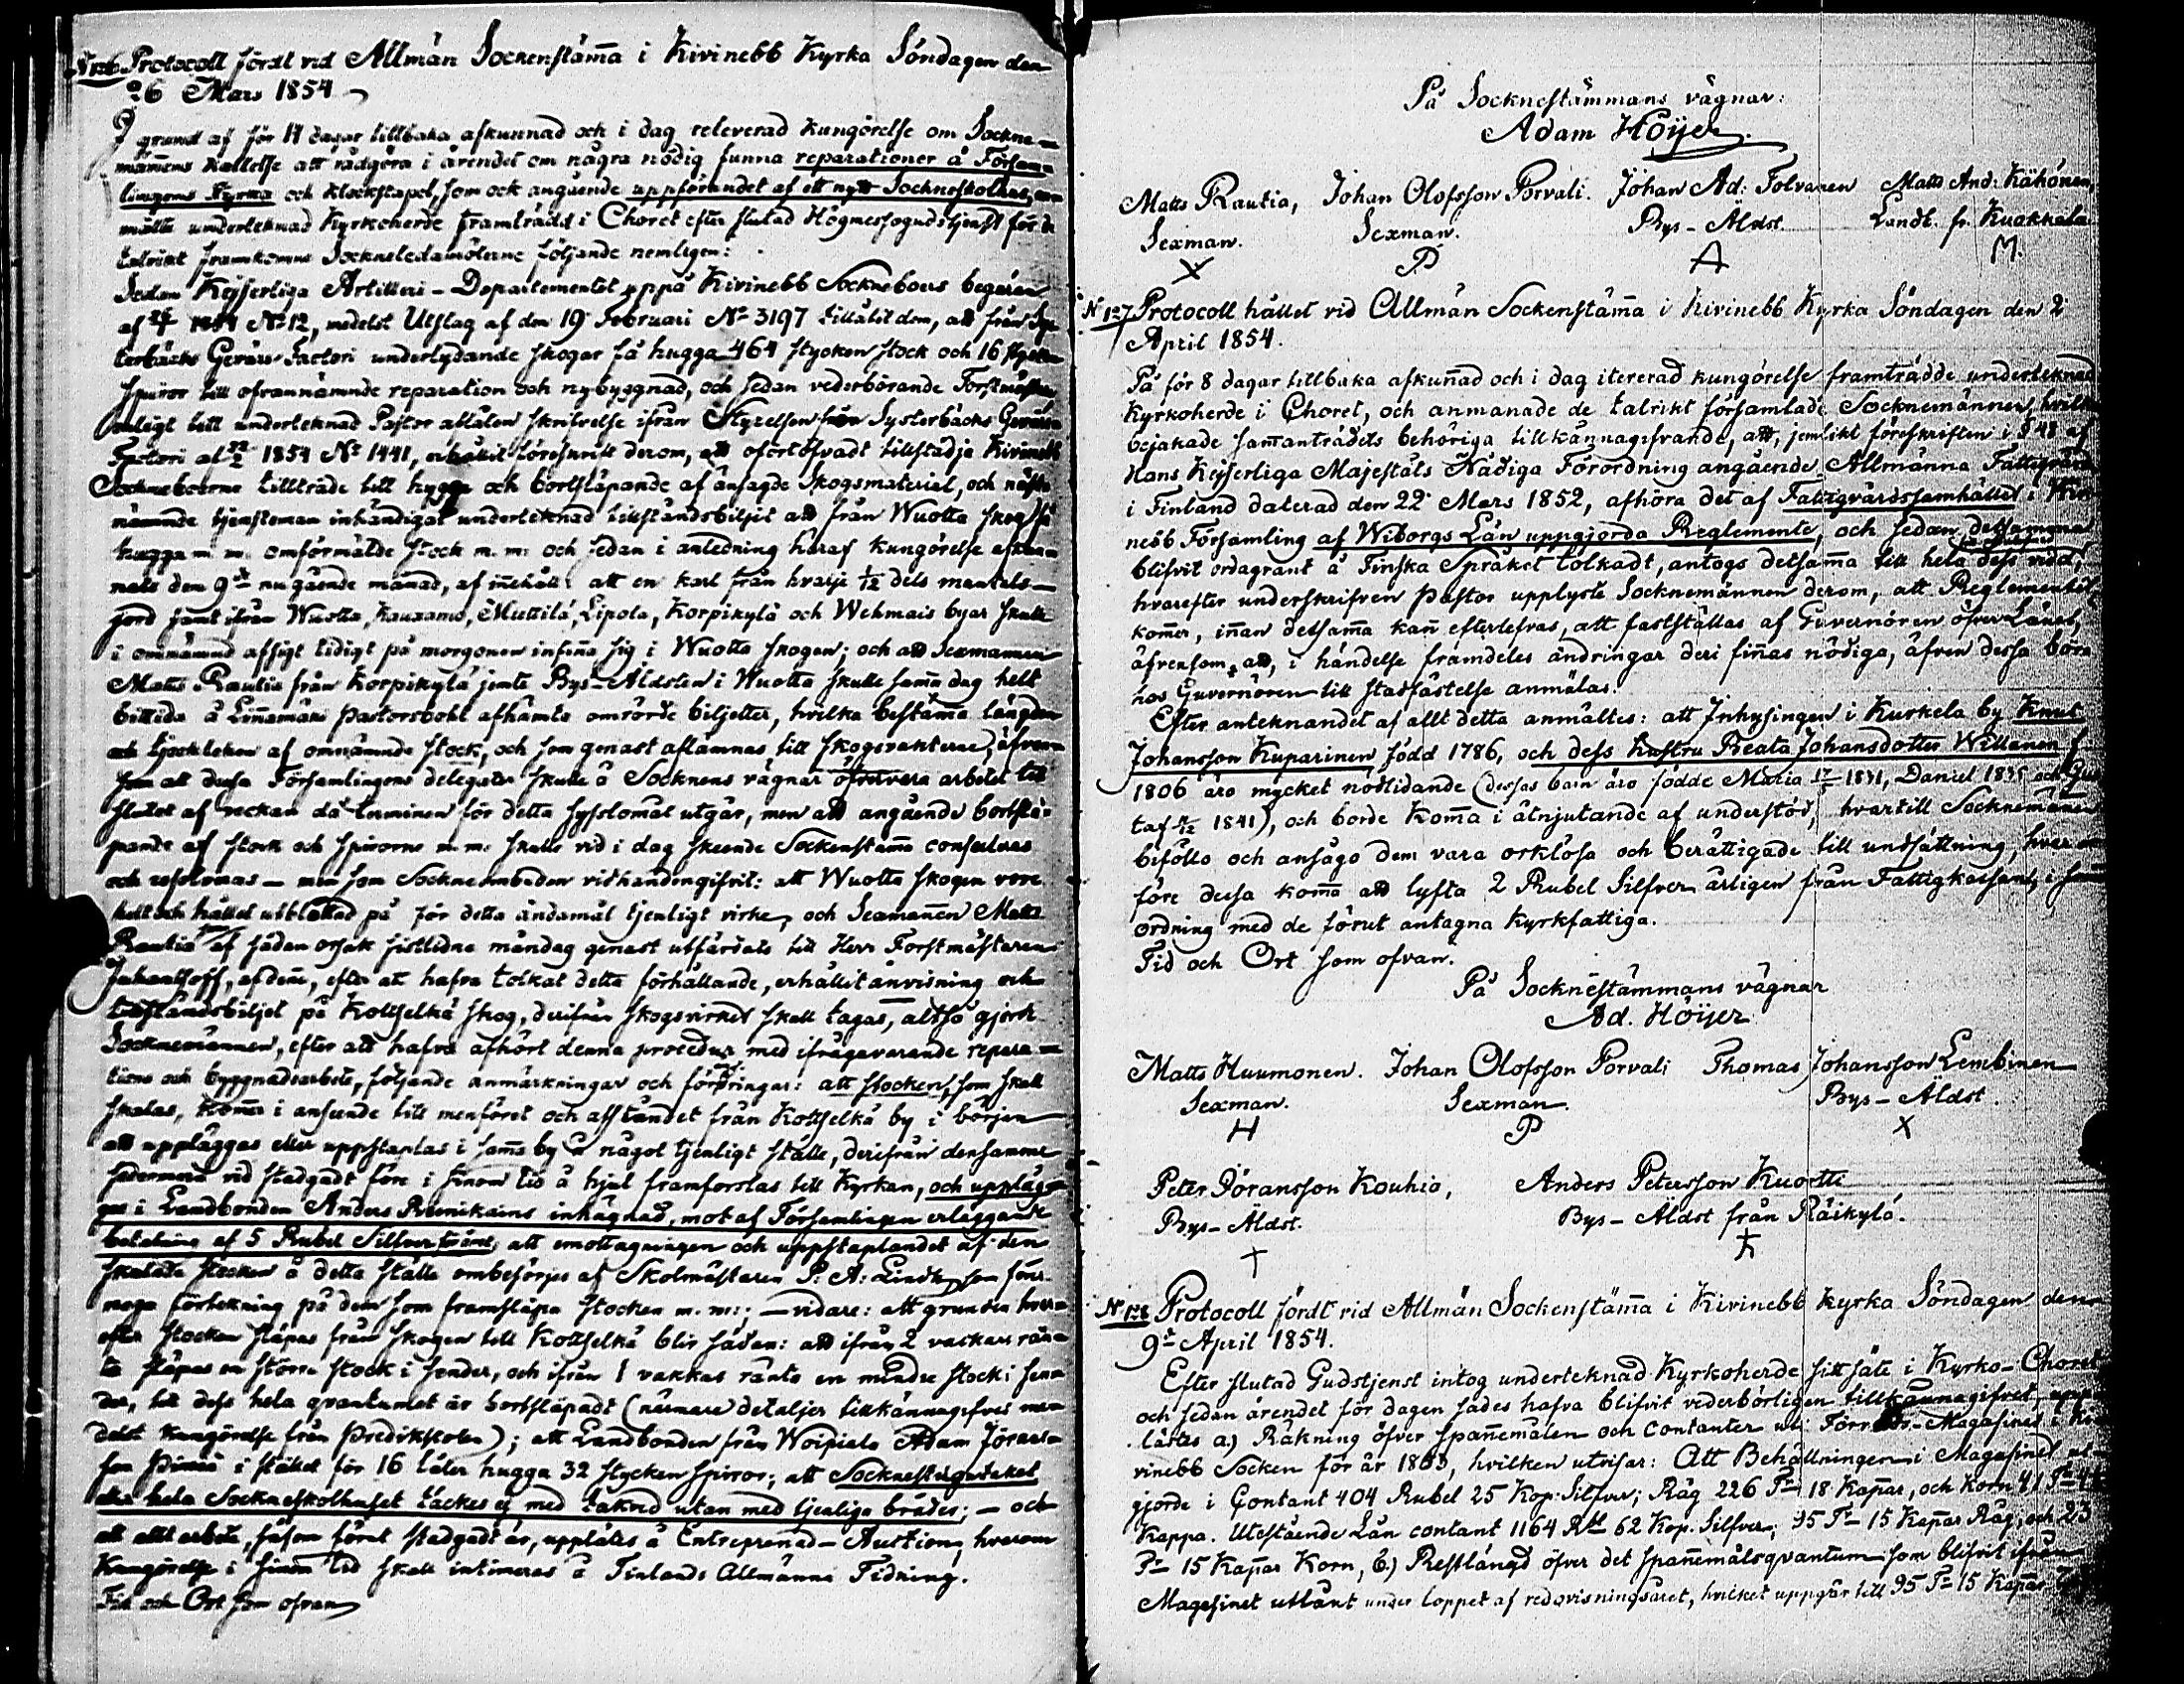 N 126 Protocoll fördt vid Allmän Sockenstäm̄a i Kivinebb Kyrka Söndagen den
26 Mars 1854
I grund af för 14 dagar tillbaka afkunnad och i dag releverad kungörelse om Sockne-
män̄ens kallelse att rådgöra i ärendet om några nödig funna reparationer å Församlingens
Kyrka och klockstapel, som ock angående uppförandet af ett nytt Sockneskolhus,
måtte underteknad Kyrkoherde framträdd i Choret efter slutad Högmessogudstjenst för de
talrikt framkomne Sockneledamöterne följande nemligen:
Sedan Kejserliga Artilleri-Departementet uppå Kivinebb Socknebors begäran
af 1854 No 12, medelst Utslag af den 19 Februari No 3197 tillåtit dem, att från Sys-
terbäcks Gevärs Factori underlydande skogar få hugga 464 stycken stock och 16 stycken
spiror till ofvannämnde reparation och nybyggnad, och sedan vederbörande Forstmästare
enligt till underteknad Pastor ablåten skrifvelse ifrån Styrelsen för Systerbäcks Gevärs
Factori af 1854 No 1441, erhållit föreskrift derom, att ofördröfvadt tillstädja Kivinebb
Sockneboerne tillträde till hygge och bortsläpande af ansagde Skogsmaterial, och näst-
nämnde tjensteman inhändigat underteknad tillståndsbiljet att från Wuotta skog få
hugga m. m. omförmälde stock m. m. och sedan i anledning häraf kungörelse afkun-
nats den 9de nugående månad, af in̄ehåll: att en karl från hvarje 1/12 dels mantals-
jord samt ifrån Wuotta, Kauxamo, Muttila, Lipola, Korpikylä och Wehmais byar skulle
i omnämnd afsigt tidigt på morgonen infin̄a sig i Wuotta skogen; och att Sexmannen
Matts Rautia från Korpikylä jemte Bys-Äldsten i Wuotta skulle sam̄a dag helt
bittida å Lin̄amäki pastorsbohl afhämta omrörde biljetter, hvilka bestäm̄a längden
och tjockleken af omnämnde stock, och som genast aflämnas till skogsvakterne, äfven-
som att dessa Församlingens delegater skulle å Socknens vägnar öfvervara arbetet till
slutet af veckan då terminen för detta sysslomål utgår, men att angående bortslä-
pande af stock och spirorne m. m. skulle vid i dag skeende Sockenstäm̄a consulteras
och resolveras - men som Sockneombuden vidhandengifvit: att Wuotta skogen vore
helt och hållet utblottad på för detta ändamål tjenligt virke, och Sexman̄en Matts
Rautia af sådan orsak sistlidne måndag genast utfärdats till Herr Forstmästaren
Juhantoff, af den̄, efter att hafva tolkat detta förhållande, erhållit anvisning och
tillståndsbiljet på Kottselkä skog, derifrån skogsvirket skall tagas, altså gjorde
Socknemännen, efter att hafva afhört denna procedur, med ifrågavarande repara-
tions och byggnadsarbete, följande anmärkningar och fordringar: att stocken, som skall
skalas, kom̄er i anseende till menföret och afståndet från Kottselkä by i början
att uppläggas eller uppstaplas i sam̄a by å något tjenligt ställe, derifrån densamma
sedermera vid stadgadt före i sinom tid å hjul framforslas till Kyrkan, och upplägg-
gas i Landbonden Anders Reunikains inhägnad, mot af Församlingen erläggande
betalning af 5 Rubel Silfver; att emottagningen och uppstaplandet af den
skalade stocken å detta ställe ombesörjes af Skolmästaren P. A: Lindh, som förer
noga förtekning på dem som framsläpa stocken m. m.; - vidare: att grunden hvar-
efter stocken släpas från skogen till Kottselkä blir sådan: att ifrån 2 vackars rän-
ta släpas en större stock i sender, och ifrån 1 vakkas ränta en mindre stock i sen-
der, till dess hela qvantumet är bortsläpadt (närmare detaljer tillkännagifves me-
delst kungörelse från predikstolen); att Landbonden från Woipiala Adam Jörans-
son i stället för 16 låter hugga 32 stycken spiror; att
hela Sockneskolhuset täckes ej med taknd utan med tjenliga bräder; - och
att allt arbete, såsom förut stadgadt är, upplåtes å Entreprenad-Auktion, hvarom
Kungörelse i sinom tid skall intimeras å Finlands Allmänna Tidning.
Tid och Ort som ofvan
På Socknestämmans vägnar:
Adam Höijer.
Matts Rautia, Johan Olofsson Porvali. Johan Ad: Tolvanen Matts And: Kähönen,
Sexman. Sexman. Bys-Äldst. Landb. fr. Kuokkala
X P A M.
N 127 Protocoll hållet vid Allmän Sockenstäm̄a i Kivinebb Kyrka Söndagen den 2
April 1854.
På för 8 dagar tillbaka afkun̄ad och i dag itererad kungörelse framträdde underteknad
Kyrkoherde i Choret, och anmanade de talrikt församlade Socknemännen, hvilka
bejakade sam̄anträdets behöriga tillkännagifvande, att, jemlikt föreskriften i § 48 af
Hans Kejserliga Majestäts Nådiga Förordning angående Allmänna Fattigvård
i Finland daterad den 22 Mars 1852, afhöra det af Fattigvårdssamhället i Kivi-
nebb Församling af Wiborgs Län uppgjorda Reglemente, och sedan detsamma
blifvit ordagrant å Finska Språket tolkadt, antogs detsam̄a till hela dess vidd,
hvarefter underskrifven Pastor upplyste Socknemännen derom, att Reglementet
kom̄er, in̄an detsam̄a kan̄ efterlefvas, att fastställas af Guvernören öfver Länet,
äfvensom, att, i händelse framdeles ändringar deri fin̄as nödiga, äfven dessa böra
hos Guvernören till stadfästelse anmälas.
Efter anteknandet af allt detta anmältes: att Inhysingen i Kurkela by Knut
Johansson Kuparinen, född 1786, och dess hustru Beata Johansdotter Willanen f.
1806 äro mycket nödlidande (dessas barn äro födde Maria 1831, Daniel 1835 och Gus-
taf 1841), och borde kom̄a i åtnjutande af understöd, hvartill Socknemännen
biföllo och ansågo dem vara orklösa och berättigade till undsättning, hvar-
före dessa kom̄a att lyfta 2 Rubel Silfver årligen från Fattigkassan, i
ordning med de förut antagna kyrkfattiga.
Tid och Ort som ofvan.
På Socknestämmans vägnar
Ad. Höijer
Matts Huumonen. Johan Olofsson Porvali Thomas Johansson Lembinen
Sexman. Sexman. Bys-Äldst.
H P X
Peter Jöransson Kouhia, Anders Petersson Kuortti
Bys-Äldst. Bys-Äldst från Räikylä.
N 128 Protocoll fördt vid Allmän Sockenstäm̄a i Kivinebb Kyrka Söndagen den
9de April 1854.
Efter slutad Gudstjenst intog underteknad Kyrkoherde sitt säte i Kyrko-Choret
och sedan ärendet för dagen sades hafva blifvit vederbörligen tillkännagifvet, upp-
lästes a.) Räkning öfver span̄emålen och Contanter uti Förråds-Magasinet i Ki-
vinebb Socken för år 1853, hvilken utvisar: Att Behållningen i Magasinet ut-
gjorde i Contant 404 Rubel 25 Kop: Silfver; Råg 226 Tr 18 Kap̄ar, och Korn 41 Tr
Kappa. Utestående Lån contant 1164 Rbl 62 Kop. Silfver; 95 Tr 15 Kap̄ar Råg, och 23
Tr 15 Kap̄ar Korn, b.) Restlängd öfver det span̄emålsqvantum som blifvit ifrån
Magasinet utlånt under loppet af redovisningsåret, hvilket uppgår till 95 Tr 15 Kap̄ar